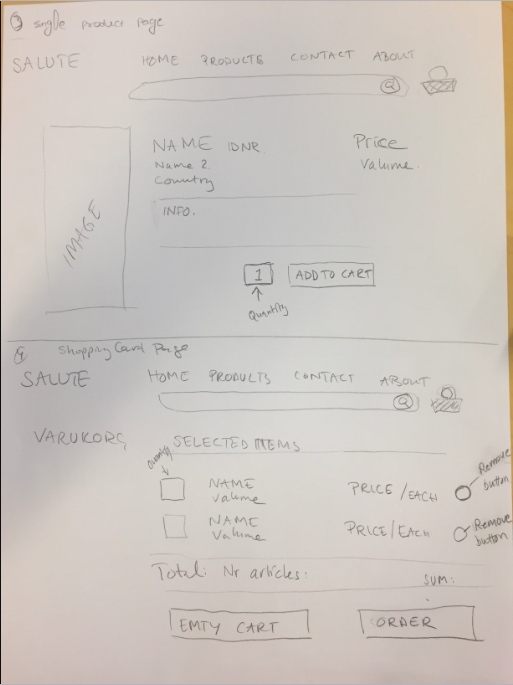 3 single product page
SALUTE HOME PRODUCTS CONTACT ABOUT
NAME IDNR Price
Name 2 Valume.
Country
INFO.
IMAGE
1 ADD TO CART
Quantity
4 Shopping Card Page
SALUTE HOME PRODULTS CONTACT ABOUT
VARUKORG SELECTED ITEMS
Quantity
NAME PRICE/EACH Remove button
Valume
NAME PRICE/EACH Remove button
Valume
Total: Nr articles: SUM:
EMTY CART ORDER